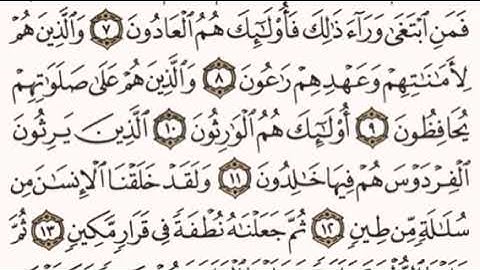 فَمَنِ ٱبْتَغَىٰ وَرَآءَ ذَٰلِكَ فَأُو۟لَٰٓئِكَ هُمُ ٱلْعَادُونَ ٧ وَٱلَّذِينَ هُمْ
لِأَمَٰنَٰتِهِمْ وَعَهْدِهِمْ رَٰعُونَ ٨ وَٱلَّذِينَ هُمْ عَلَىٰ صَلَوَٰتِهِمْ
يُحَافِظُونَ ٩ أُو۟لَٰٓئِكَ هُمُ ٱلْوَٰرِثُونَ ١٠ ٱلَّذِينَ يَرِثُونَ
ٱلْفِرْدَوْسَ هُمْ فِيهَا خَٰلِدُونَ ١١ وَلَقَدْ خَلَقْنَا ٱلْإِنسَٰنَ مِن
سُلَٰلَةٍ مِّن طِينٍ ١٢ ثُمَّ جَعَلْنَٰهُ نُطْفَةً فِى قَرَارٍ مَّكِينٍ ١٣ ثُمَّ